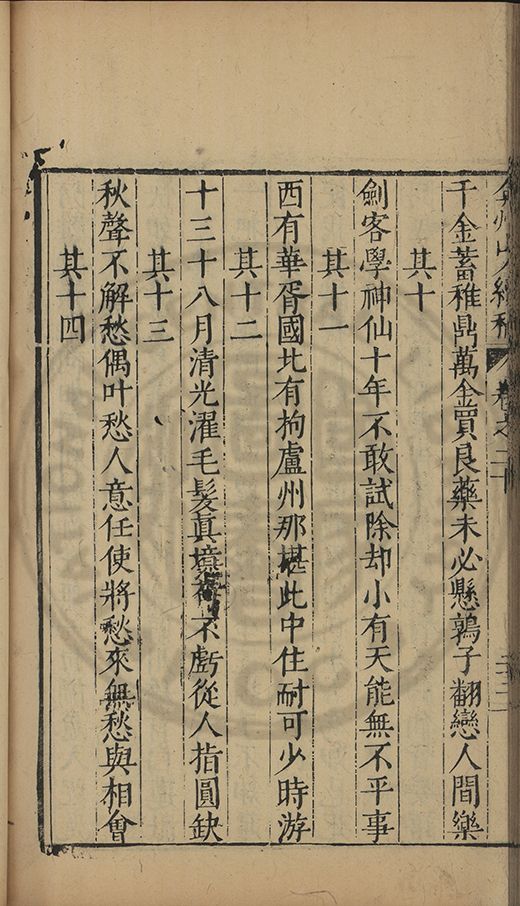 山人續稿 卷之二十
千金蓄稚鼎萬金買良藥未必懸鶉子翻戀人間樂
其十
劍客學神仙十年不敢試除却小有天能無不平事
其十一
西有華胥國北有拘盧州那堪此中住耐可少時游
其十二
十三十八月清光濯毛髮真不虧從人指圓缺
其十三
秋聲不解愁偶叶愁人意任使將愁來無愁與相會
其十四